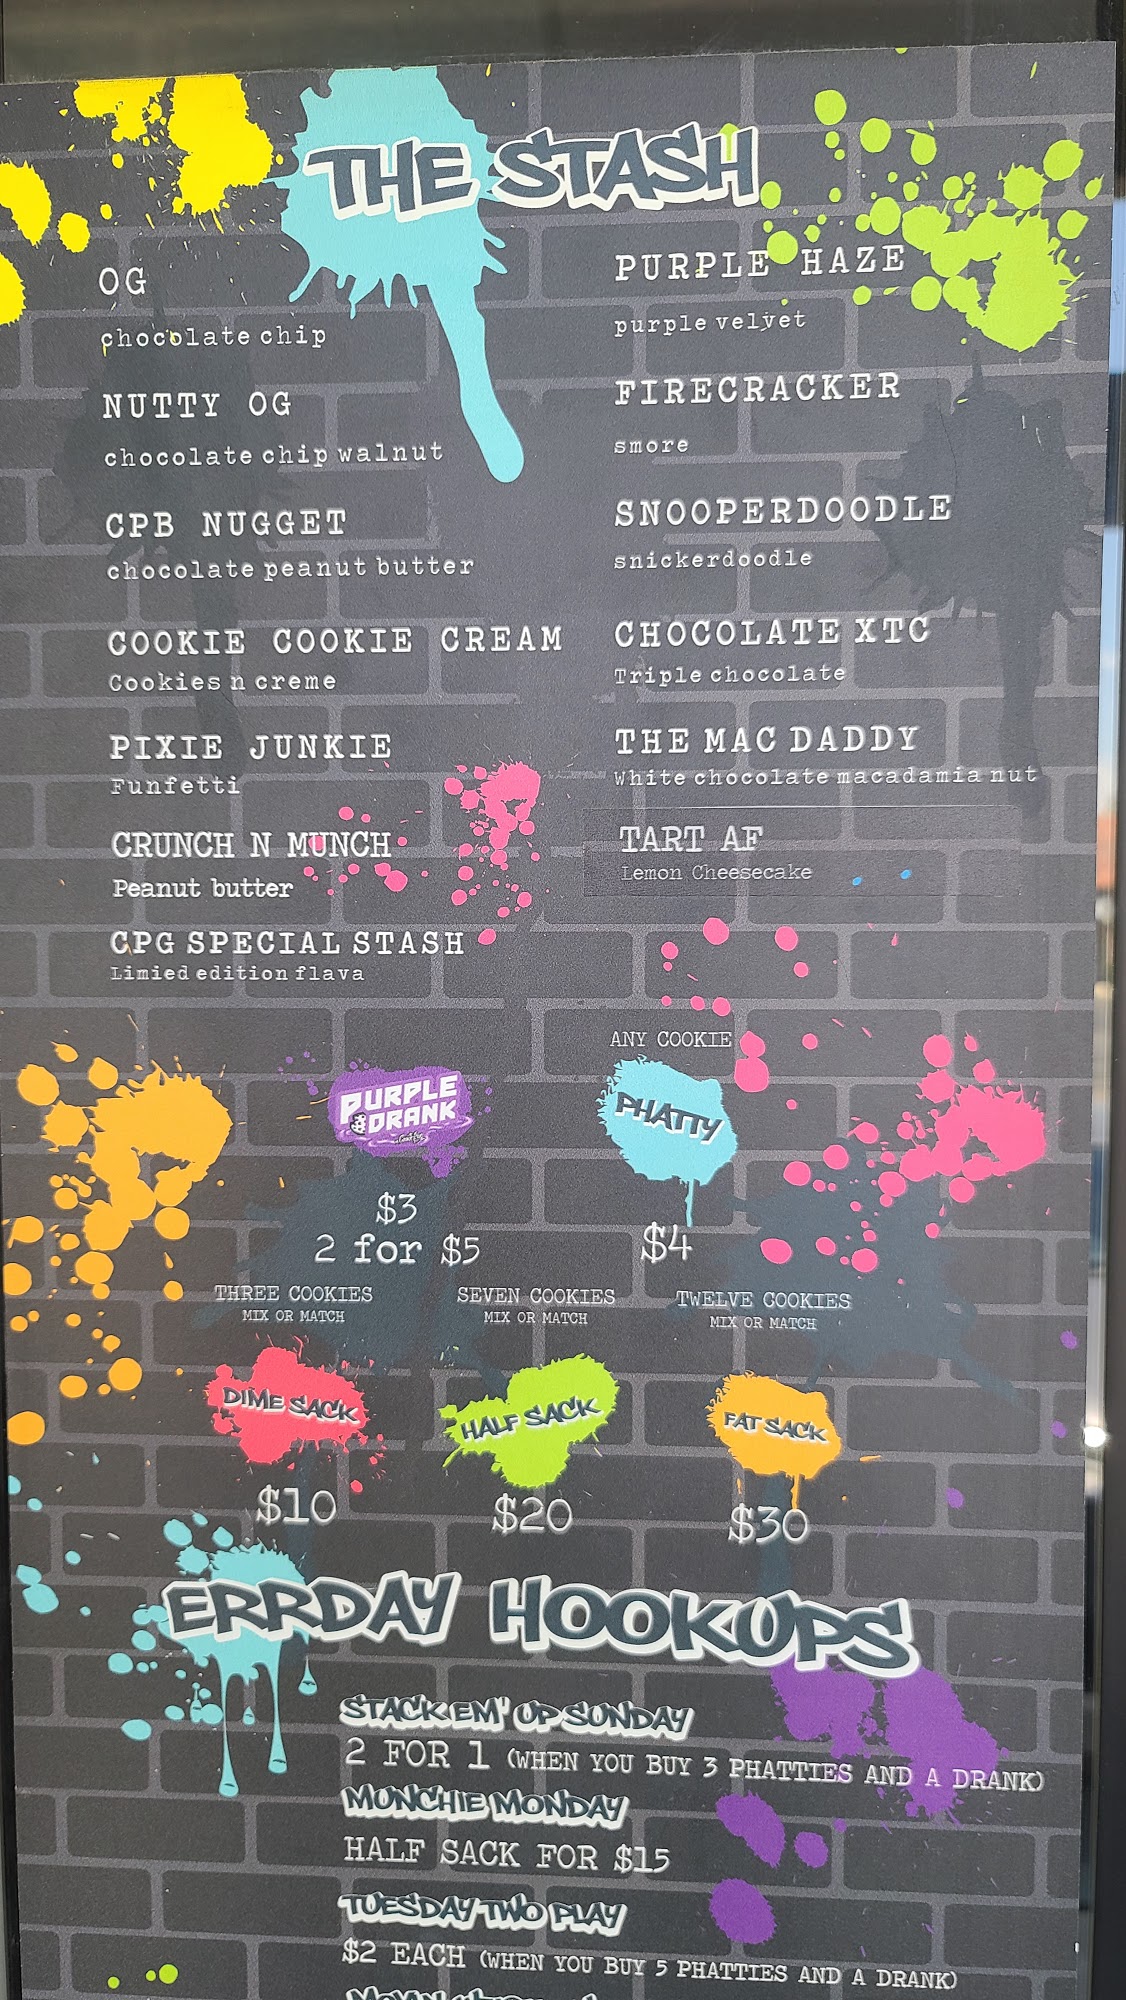 THE STASH
OG
chocolate chip
NUTTY OG
chocolate chip walnut
CPB NUGGET
chocolate peanut butter
COOKIE COOKIE CREAM
Cookies n creme
PIXIE JUNKIE
Funfetti
CRUNCH N MUNCH
Peanut butter
CPG SPECIAL STASH
Limied edition flava
PURPLE HAZE
purple velvet
FIRECRACKER
smore
SNOOPERDOODLE
snickerdoodle
CHOCOLATE XTC
Triple chocolate
THE MAC DADDY
White chocolate macadamia nut
TART AF
Lemon Cheesecake
PURPLE
DRANK
$3
2 for $5
ANY COOKIE
PHATTY
$4
THREE COOKIES
MIX OR MATCH
DIME SACK
$10
SEVEN COOKIES
MIX OR MATCH
HALF SACK
$20
TWELVE COOKIES
MIX OR MATCH
FAT SACK
$30
ERRDAY HOOKUPS
STACK EM' UP SUNDAY
2 FOR 1 (WHEN YOU BUY 3 PHATTIES AND A DRANK)
MUNCHIE MONDAY
HALF SACK FOR $15
TUESDAY TWO PLAY
$2 EACH (WHEN YOU BUY 5 PHATTIES AND A DRANK)